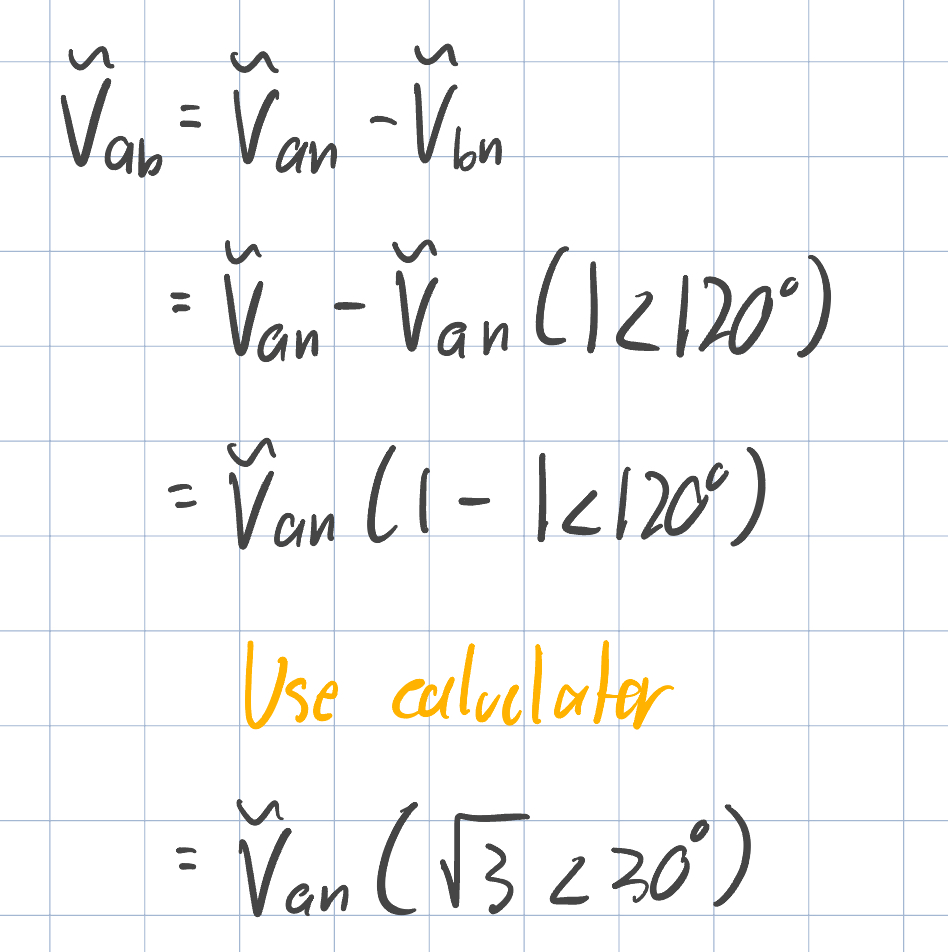 Ṽab = Ṽan - Ṽbn
= Ṽan - Ṽan (1<120°)
= Ṽan (1 - 1<120°)
Use calculator
= Ṽan (√3 <30°)